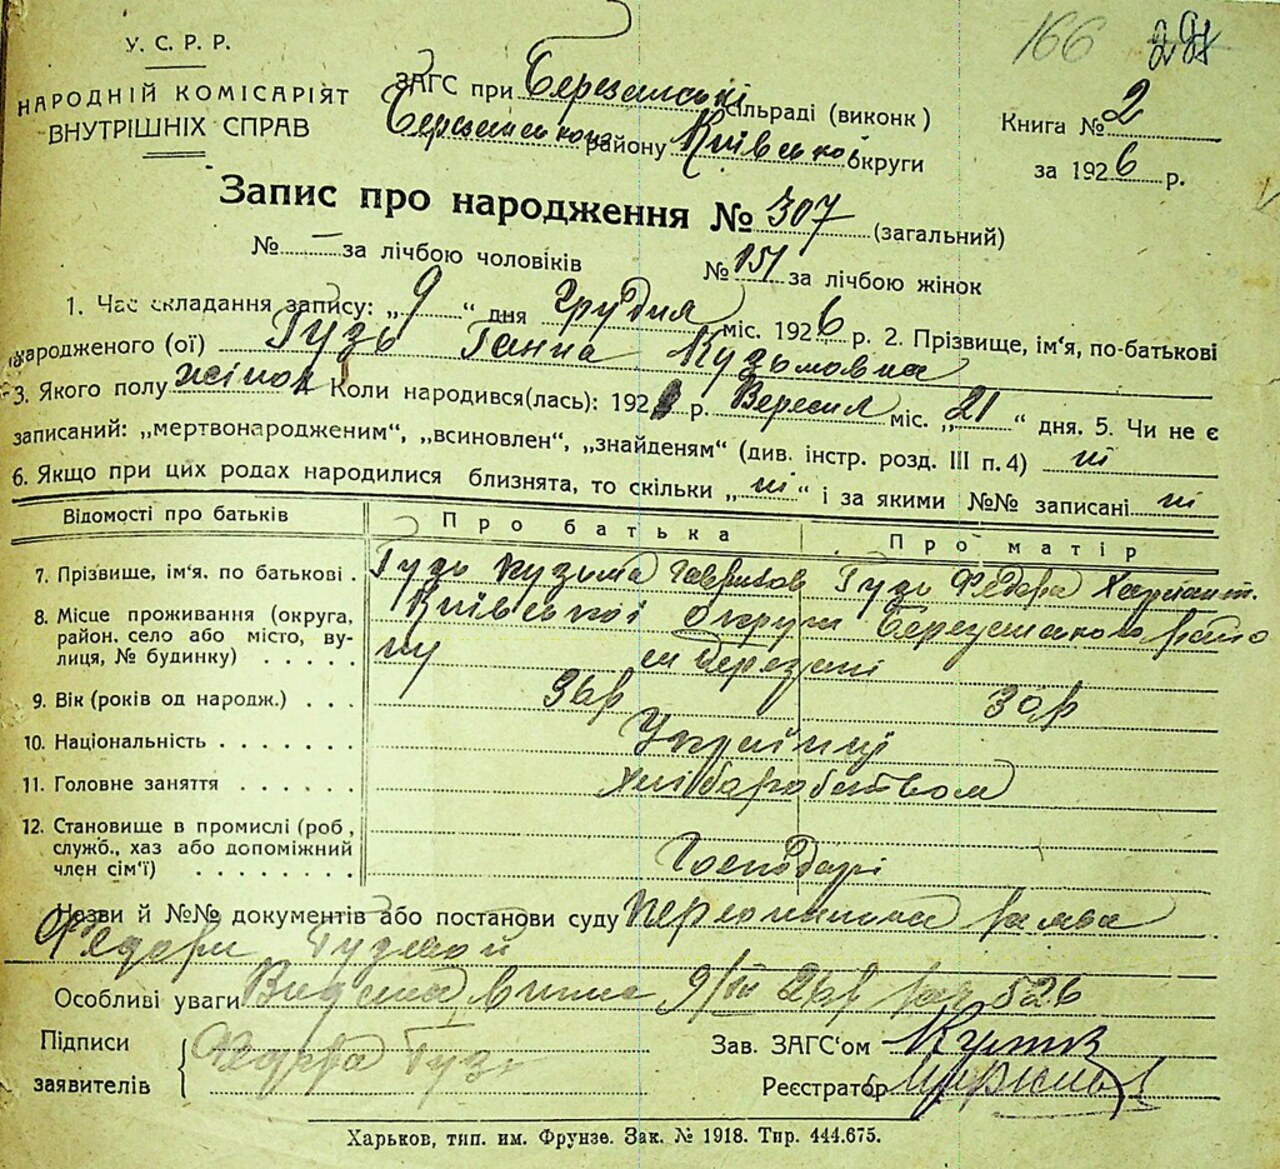 166
У. С. Р. Р.
НАРОДНІЙ КОМІСАРІЯТ
ВНУТРІШНІХ СПРАВ
ЗАГС при Березанські сільраді (виконк)
Березанського району Київської округи
Книга № 2
за 1926 р.
Запис про народження № 307 (загальний)
№ — за лічбою чоловіків № 151 за лічбою жінок
1. Час складання запису: „9“ дня Грудня міс. 1926 р. 2. Прізвище, ім'я, по-батькові
народженого (ої) Гузь Ганна Кузьмовна
3. Якого полу жіноч Коли народився(лась): 192 р. Вересня міс. „21“ дня. 5. Чи не є
записаний: „мертвонародженим“, „всиновлен“, „знайденям“ (див. інстр. розд. III п. 4) ні
6. Якщо при цих родах народилися близнята, то скільки „ні“ і за якими №№ записані ні
Відомості про батьків Про батька Про матір
7. Прізвище, ім'я. по батькові. Гузь Кузьма Гаврилов Гузь Федора Харлампт.
8. Місце проживання (округа, Київської округи Березанського райо
район. село або місто, ву- ну м Березані
лиця, № будинку) . . . . .
9. Вік (років од народж.) . . . 36р 30р
10. Національність . . . . . . . Українці
11. Головне заняття . . . . . . Хліборобством
12. Становище в промислі (роб,
служб., хаз або допоміжний Господарі
член сім'ї) . . . . . . . .
Назви й №№ документів або постанови суду Персональна заява
Федори Гузевой
Особливі уваги Видана виписка 9/XII 26р за № 526
Підписи
заявителів
Федора Гузь
Зав. ЗАГС'ом
Реєстратор
Харьков, тип. им. Фрунзе. Зак. № 1918. Тир. 444.675.